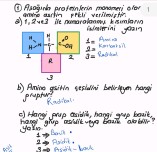 ① Aşağıda proteinlerin monomeri olan
amino asitin şekli verilmiştir.
a) 1, 2 ve 3 ile numaralanmış kısımların
isimlerini yazın
1 = Amino
2 = Karboksil
3 = Radikal
H
N
H
H
C
C
O
OH
1
R
2
3
b) Amino asitin çeşidini belirleyen hangi
gruptur?
Radikal
c) Hangi grup asidik, hangi grup bazik,
hangi grup asidik veya bazik olabilir?
yazın.
1 → Bazik
2 → Asidik
3 → Asidik - bazik